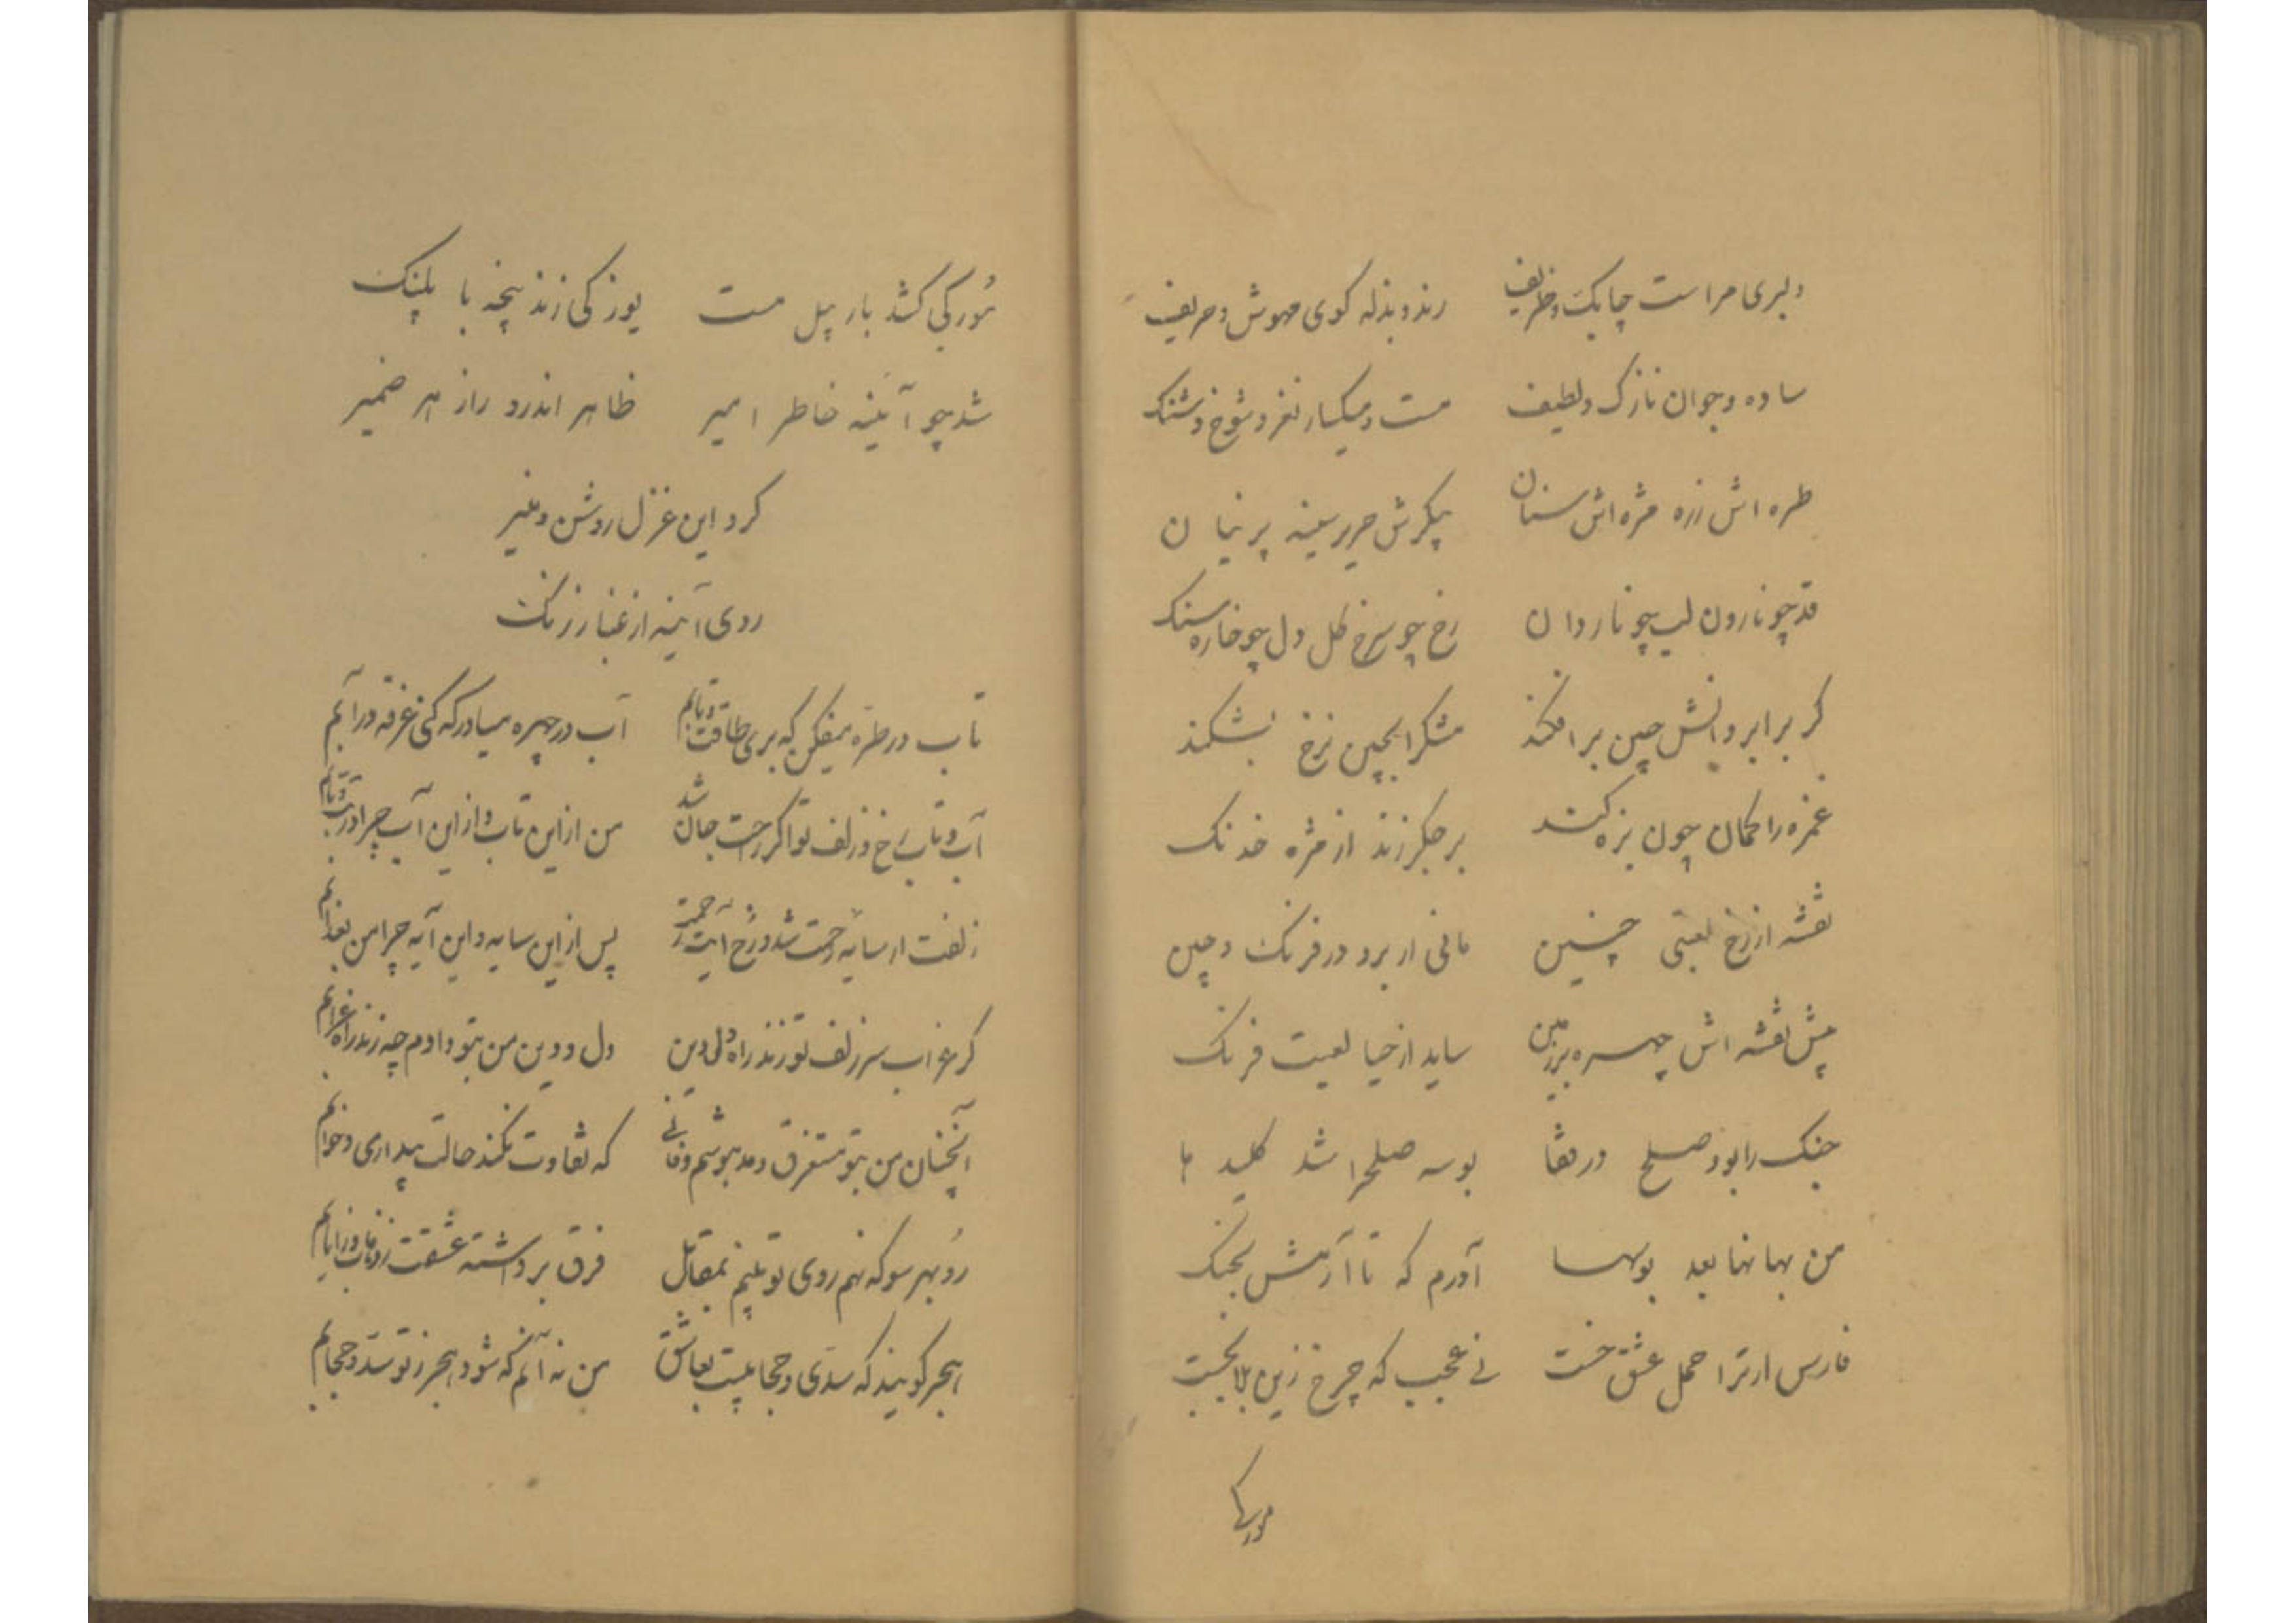 دلبری مراست چابک و ظریف رند و بذله کوی مهوش و حریف
ساده و جوان نازک و لطیف مست و میکسار نغز و شوخ و شنک
طره اش زره مژه اش سنان پیکرش حریر سینه پرنیان
قد چو نارون لب چو ناردان رخ چو سرخ کل دل چو خاره سنک
کر بر ابروانش چین برافکند مشکرا بچین نرخ بشکند
غمزه را کمان چون بزه کند بر جکر زند از مژه خدنک
نقشه از رخ لعبتی چنین مانی ار برد در فرنک و چین
پیش نقشه اش چهره بر زمین ساید از حیا لعبت فرنک
جنک را بود صلح در قفا بوسه صلحرا شد کلید ها
من بها نها بعد بوسها آورم که تا آرمش بجنک
فارس ار ترا حمل عشق خست نے عجب که چرخ زین بلا بجست
مورکے
مُور کی کشد بار پیل مست یوز کی زند پنجه با پلنک
شد چو آئینه خاطر امیر ظاهر اندرو راز هر ضمیر
کرد این غزل روشن و منیر
روی آینه از غبار زنک
تاب در طره میفکن که بری طاقت و تابم آب در چهره میاور که کنی غرقه در آبم
آب و تاب رخ و زلف تو اکر راحت جان شد من از این تاب و از این آب چرا در تب و تابم
زلفت ار سایه رحمت شد و رخ آیت رحمت پس از این سایه و این آیه چرا من بعذابم
کر غراب سر زلف تو زند راه دل و دین دل و دین من بتو دادم چه زند راه غرابم
آنچنان من بتو مستغرق و مدهوشم و فانے که تفاوت نکند حالت بیداری و خوابم
رُو بهر سو که نهم روی تو بینم بمقابل فرق برداشته عشقت
هجر کویند که سدی و حجابیست بعاشق من نه آنم که شود هجر ز تو سد و حجابم